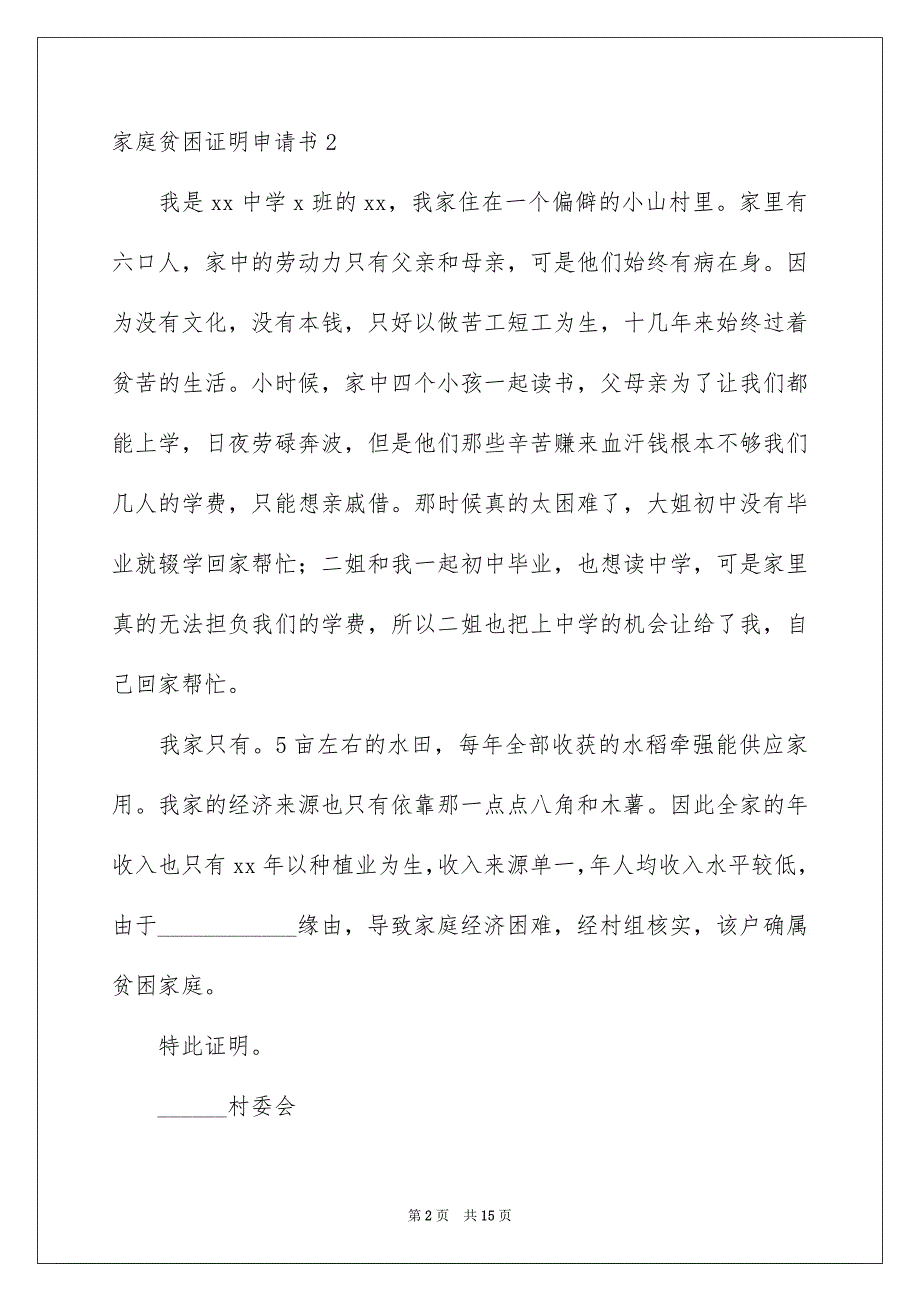 家庭贫困证明申请书2
我是xx中学x班的xx，我家住在一个偏僻的小山村里。家里有
六口人，家中的劳动力只有父亲和母亲，可是他们始终有病在身。因
为没有文化，没有本钱，只好以做苦工短工为生，十几年来始终过着
贫苦的生活。小时候，家中四个小孩一起读书，父母亲为了让我们都
能上学，日夜劳碌奔波，但是他们那些辛苦赚来血汗钱根本不够我们
几人的学费，只能想亲戚借。那时候真的太困难了，大姐初中没有毕
业就辍学回家帮忙；二姐和我一起初中毕业，也想读中学，可是家里
真的无法担负我们的学费，所以二姐也把上中学的机会让给了我，自
己回家帮忙。
我家只有。5亩左右的水田，每年全部收获的水稻牵强能供应家
用。我家的经济来源也只有依靠那一点点八角和木薯。因此全家的年
收入也只有xx年以种植业为生,收入来源单一,年人均收入水平较低，
由于____________缘由，导致家庭经济困难，经村组核实，该户确属
贫困家庭。
特此证明。
______村委会
第2页 共15页